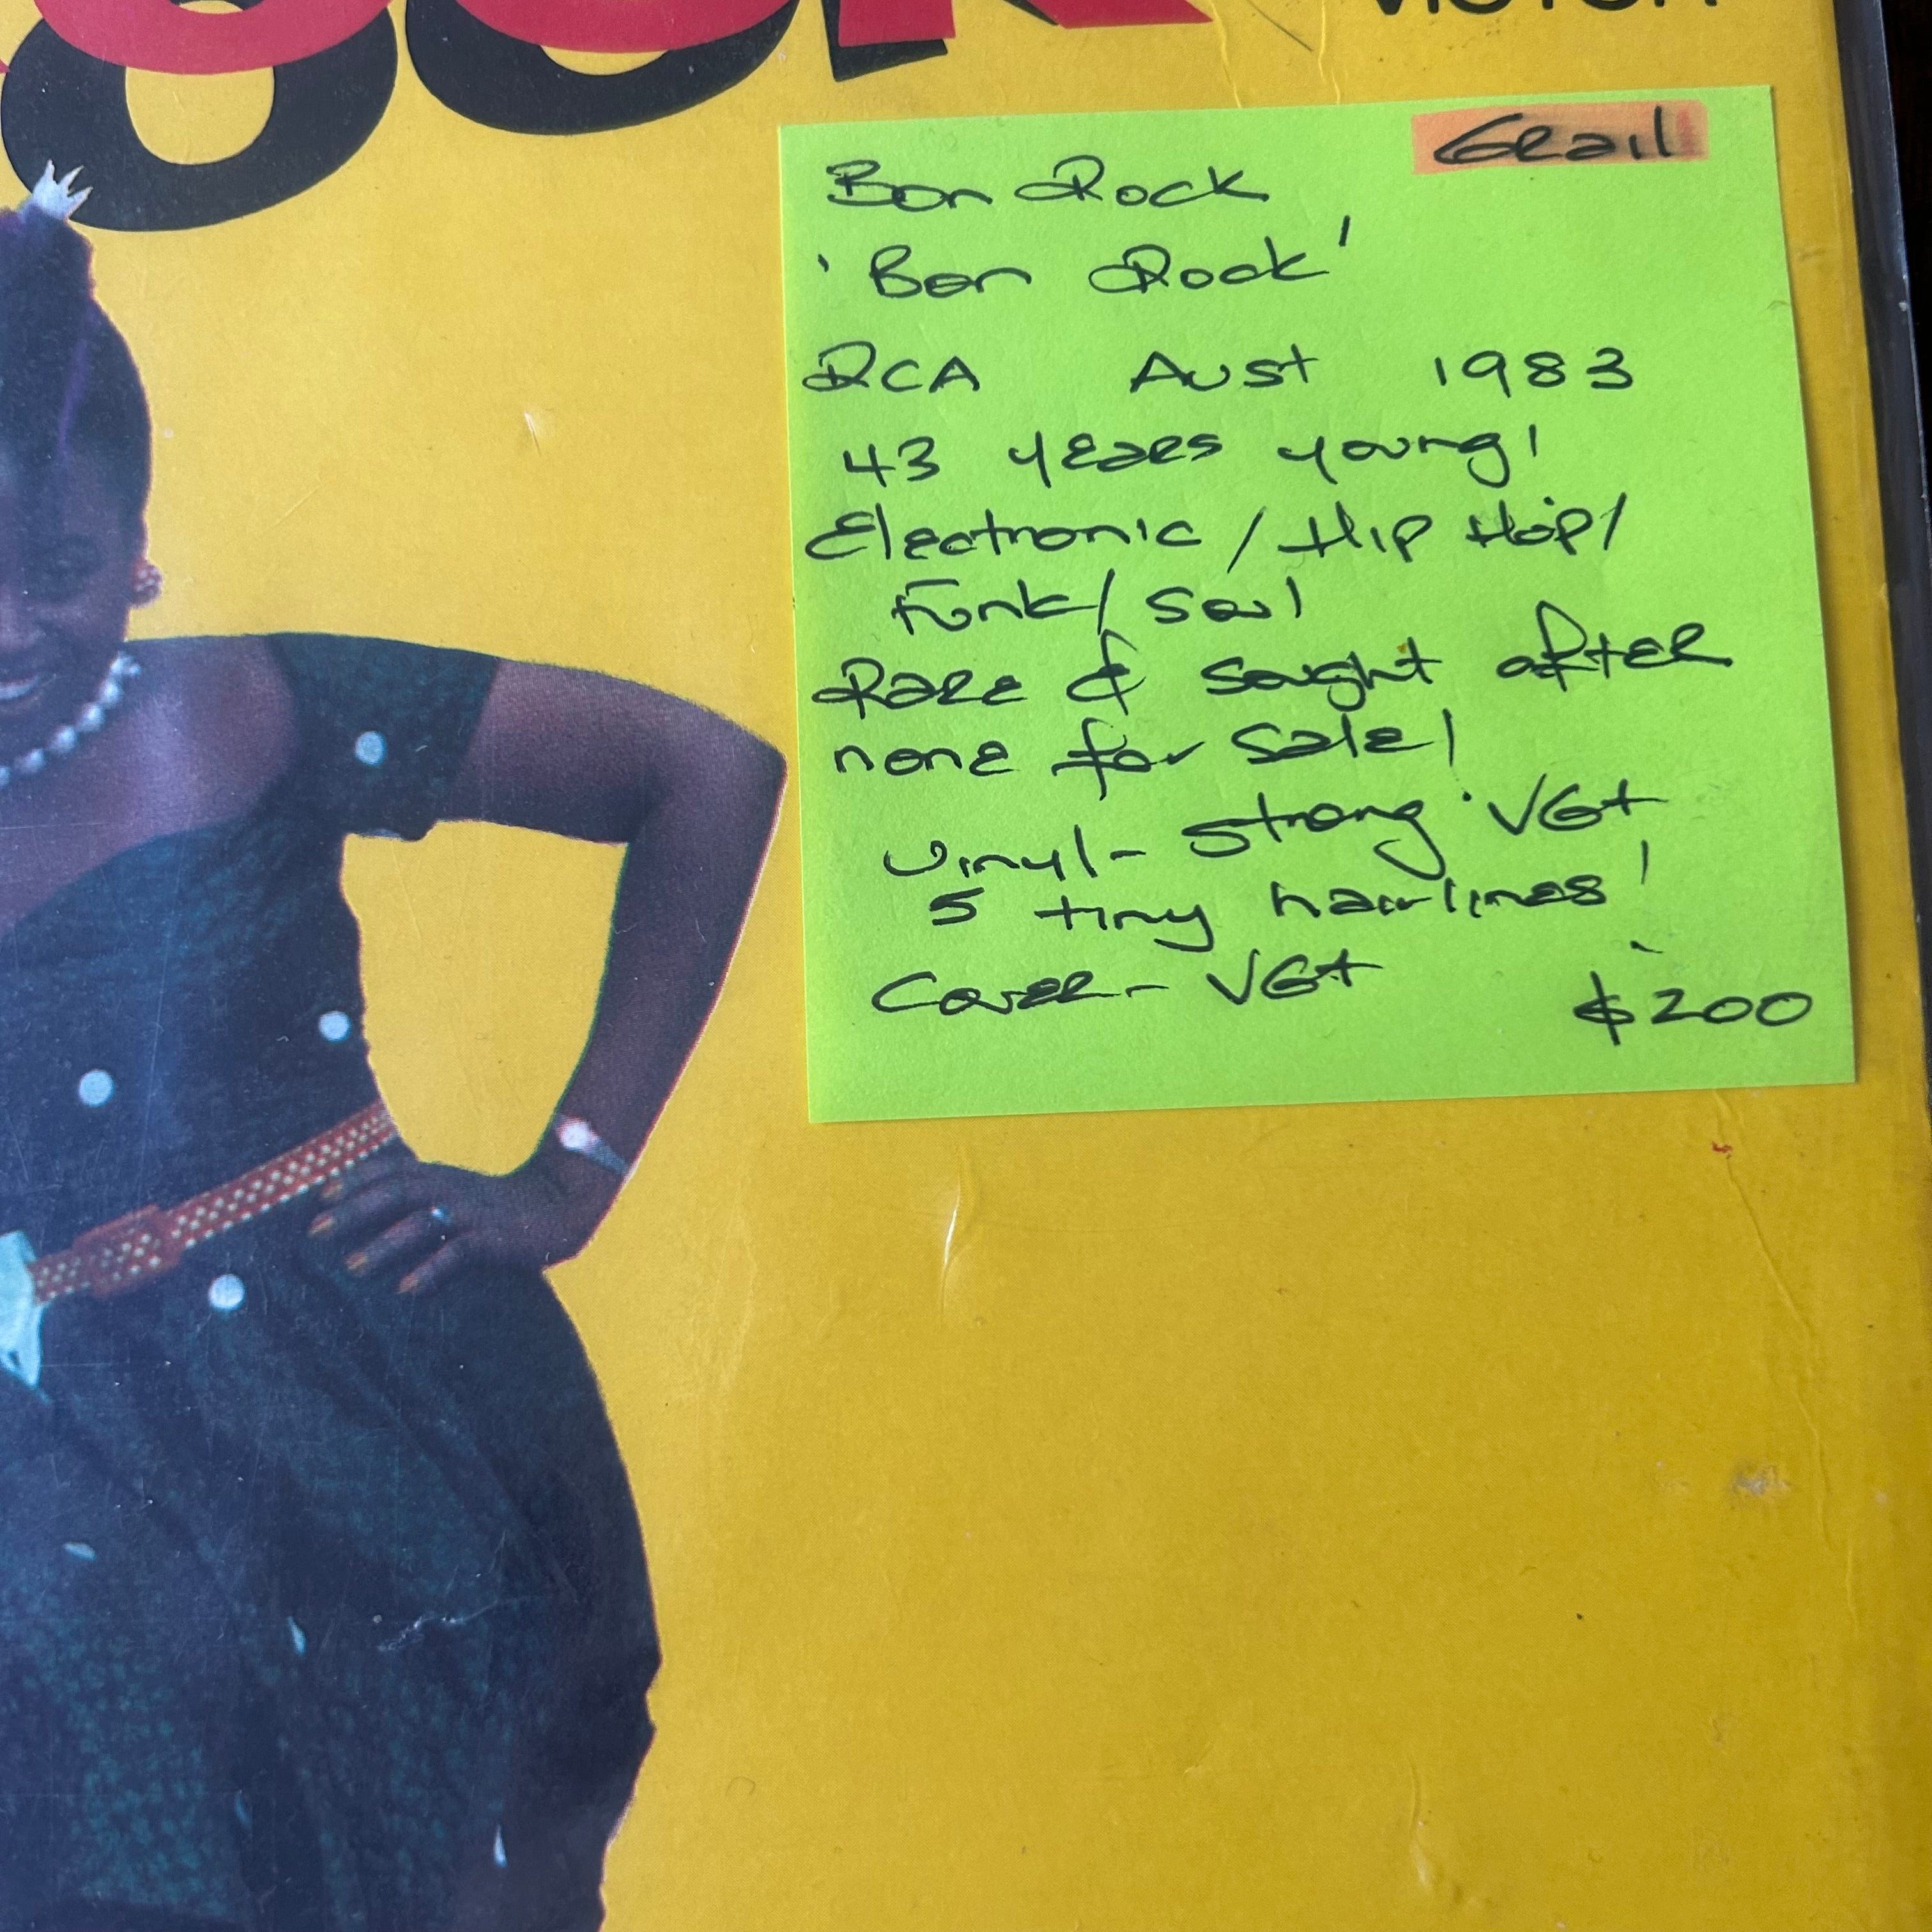 VICTOR
Grail
Bon Rock
'Bon Rock'
RCA Aust 1983
43 years young!
Electronic / Hip Hop/
Funk/ Soul
Rare & sought after
none for sale!
Vinyl - strong VG+
5 tiny hairlines!
Cover - VG+
$200